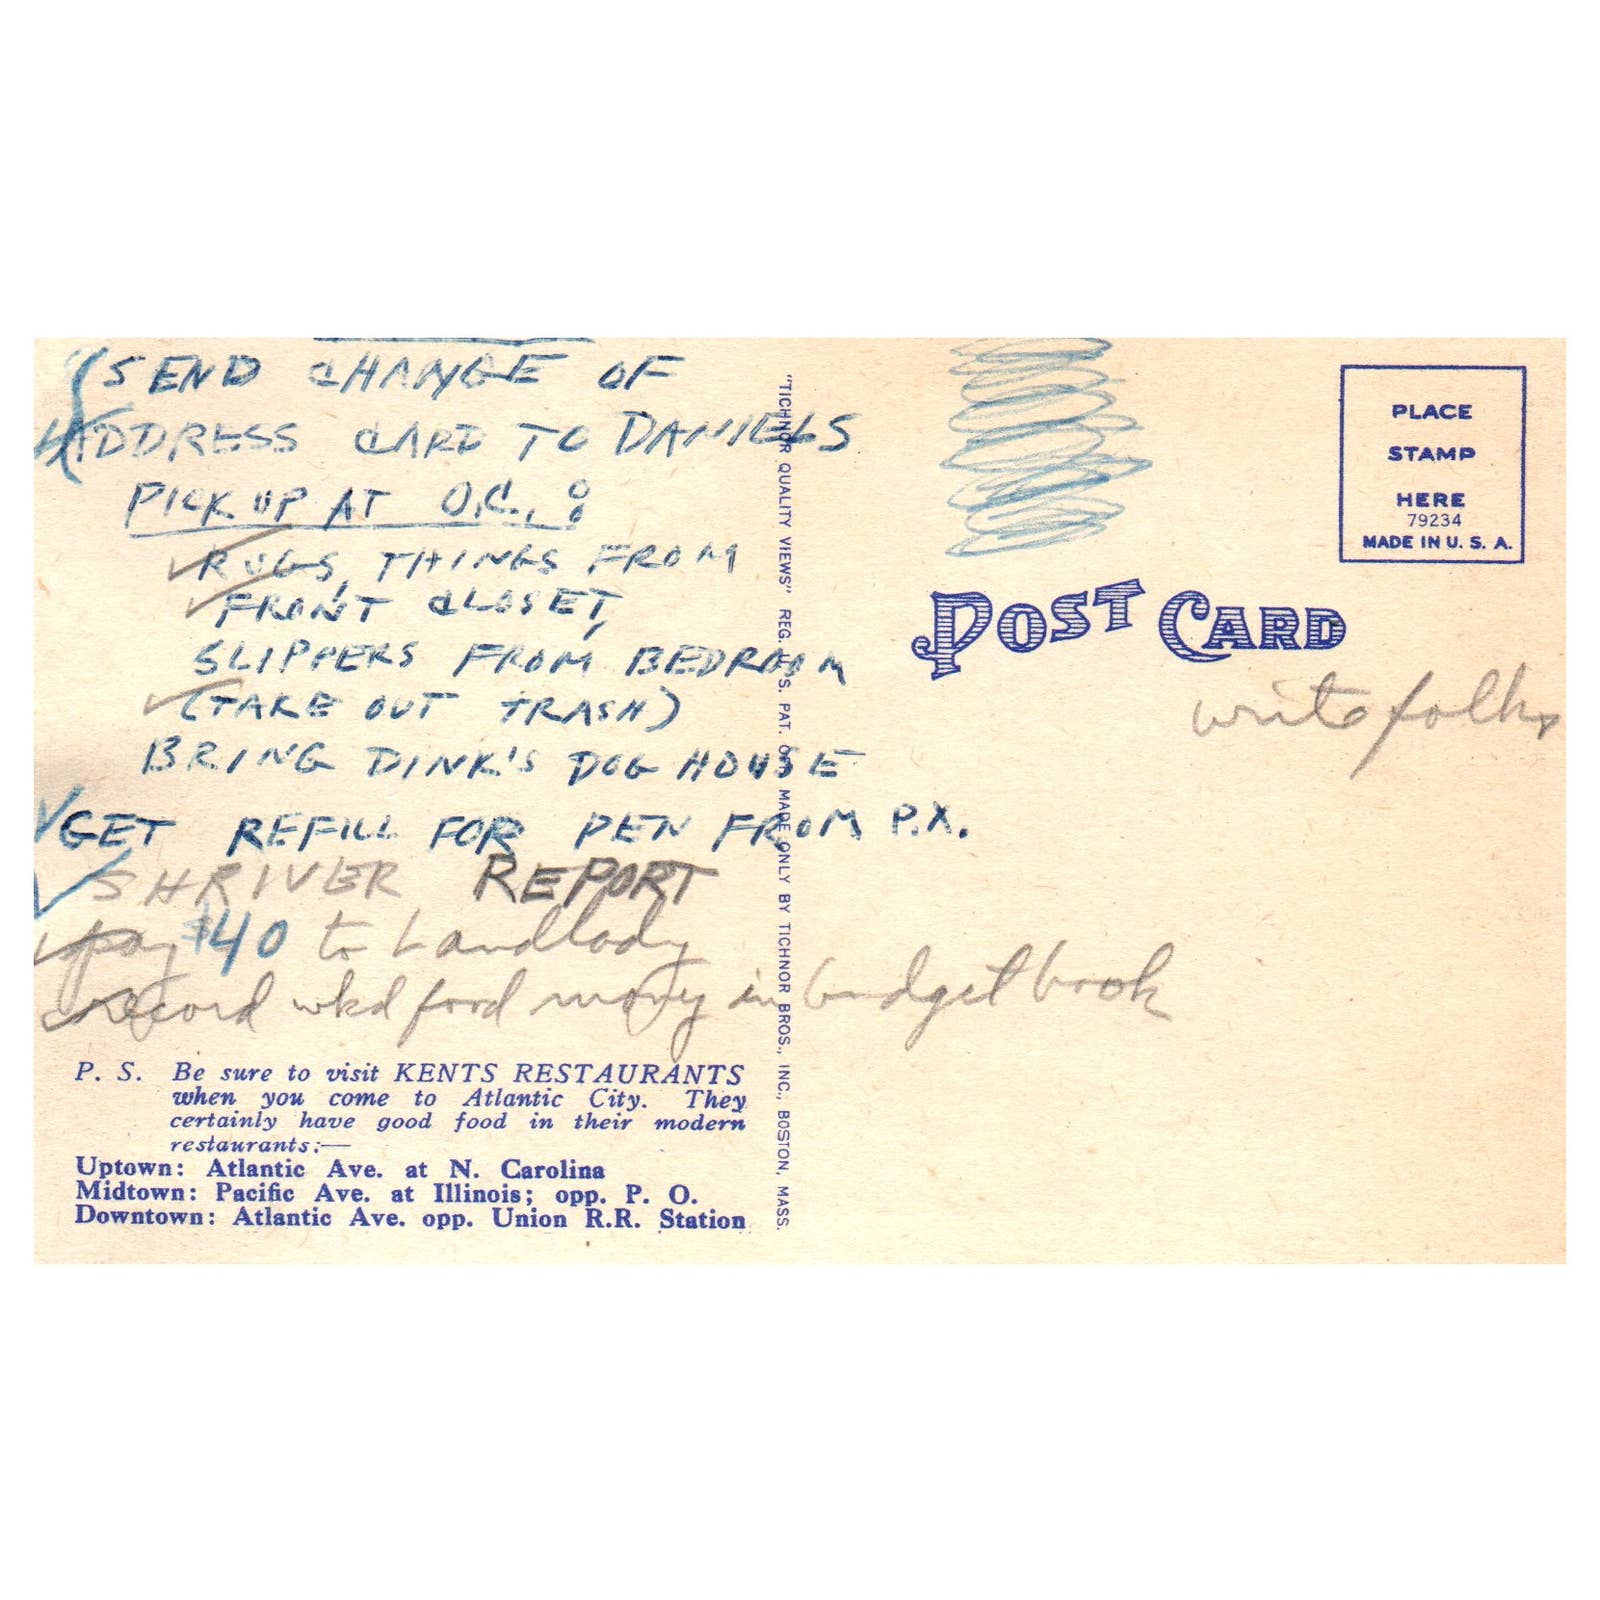 SEND CHANGE OF
ADDRESS CARD TO DANIELS
PICK UP AT O.C. :
RUGS, THINGS FROM
FRONT CLOSET,
SLIPPERS FROM BEDROOM
(TAKE OUT TRASH)
BRING DINK'S DOG HOUSE
GET REFILL FOR PEN FROM P.X.
SHRIVER REPORT
pay $40 to Landlady
record wkd food money in budget book
P. S. Be sure to visit KENTS RESTAURANTS
when you come to Atlantic City. They
certainly have good food in their modern
restaurants:—
Uptown: Atlantic Ave. at N. Carolina
Midtown: Pacific Ave. at Illinois; opp. P. O.
Downtown: Atlantic Ave. opp. Union R.R. Station
"TICHNOR QUALITY VIEWS" REG. U. S. PAT. OFF. MADE ONLY BY TICHNOR BROS., INC., BOSTON, MASS.
PLACE
STAMP
HERE
79234
MADE IN U. S. A.
POST CARD
write folks